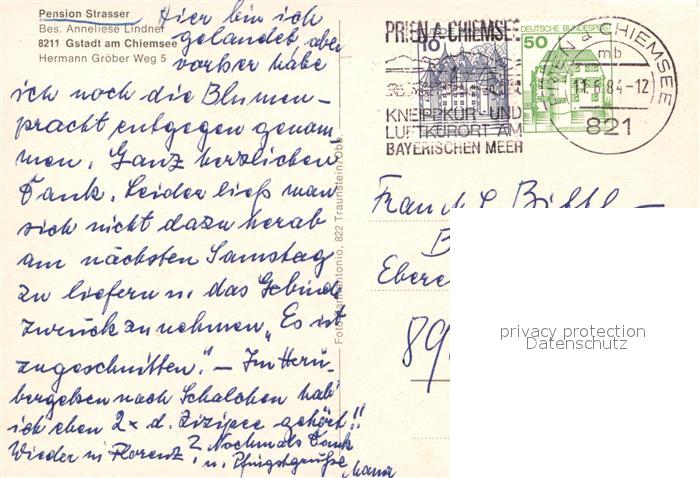 Pension Strasser
Bes. Anneliese Lindner
8211 Gstadt am Chiemsee
Hermann Gröber Weg 5
Hier bin ich
gelandet, aber
vorher habe
ich noch die Blumen-
pracht entgegen genom-
men. Ganz herzlichen
Dank. Leider ließ man
sich nicht dazu herab
am nächsten Samstag
zu liefern u. das Gebinde
zurückzunehmen, "Es ist
zugeschnitten." – Im Herü-
bergehen nach Schalchen hab'
ich eben 2x d. Zizipee gehört!!
Wieder in Florenz? Nochmals Dank
u. Pfingstgrüße
822 Traunstein/Obb.
PRIEN A. CHIEMSEE
KNEIPPKUR- UND
LUFTKURORT AM
BAYERISCHEN MEER
10
DEUTSCHE BUNDESPOST
50
PRIEN a CHIEMSEE
mb
11.6.84-12
821
privacy protection
Datenschutz